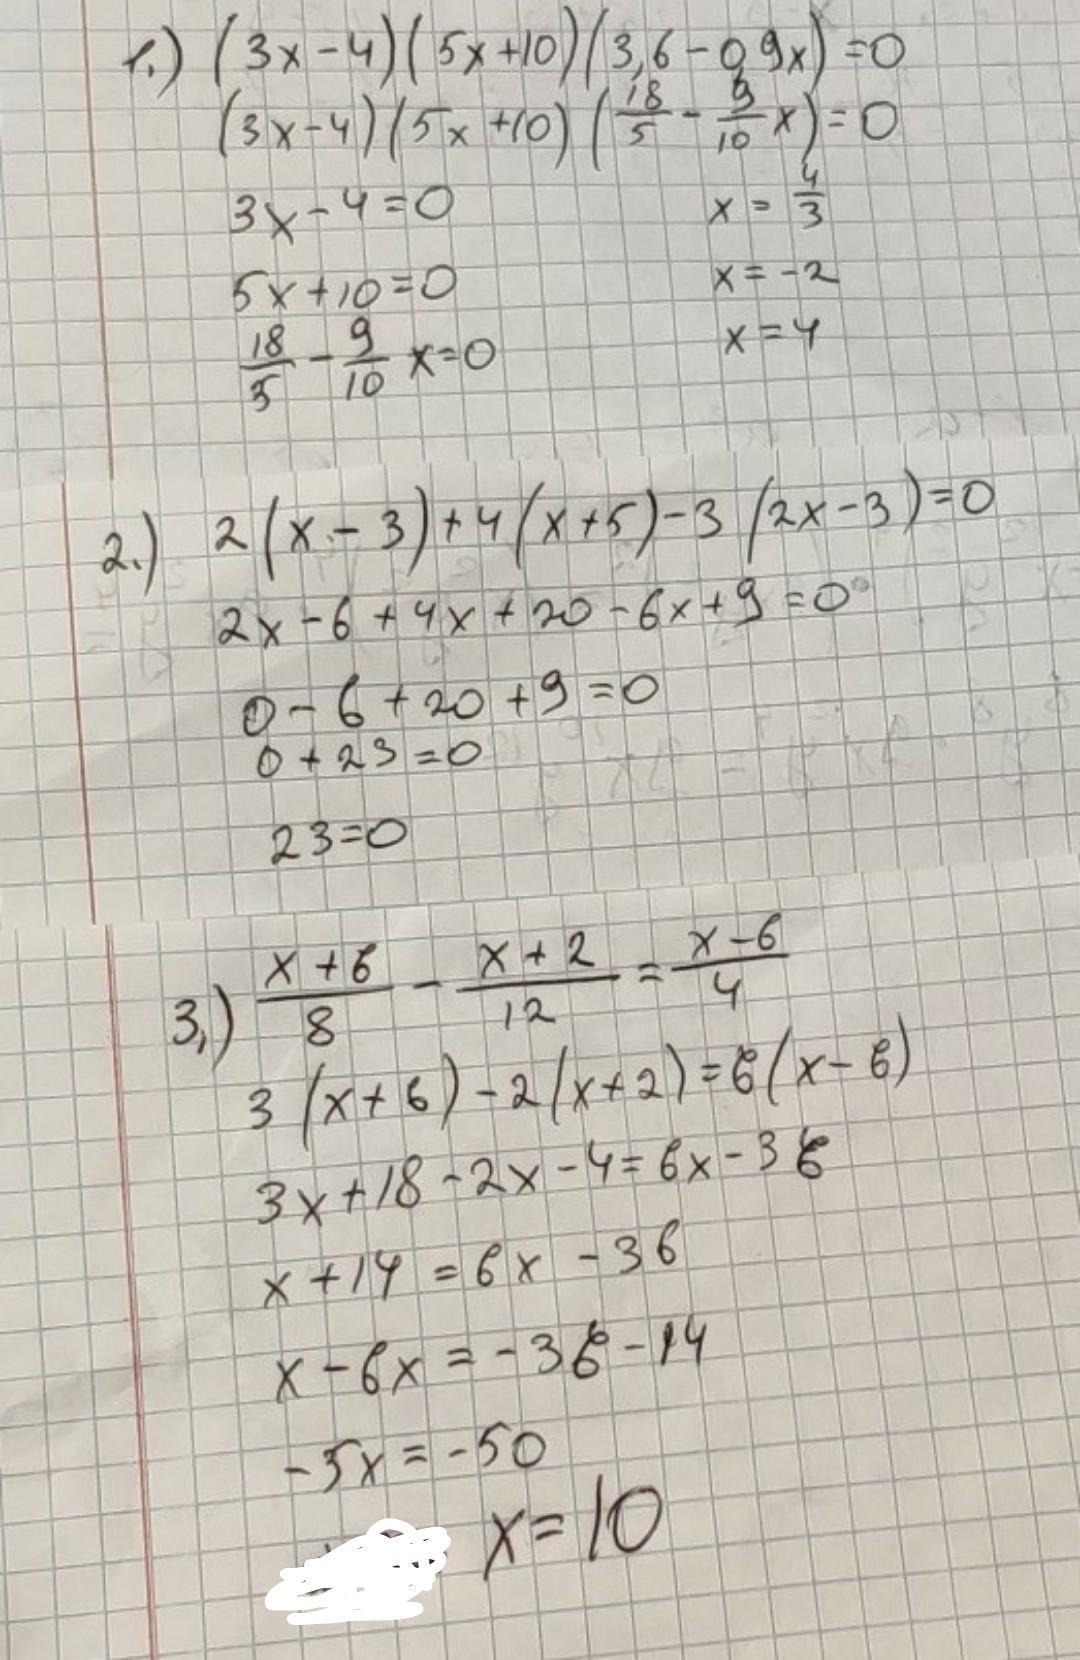 1.) (3x-4)(5x+10)(3,6-0,9x)=0
(3x-4)(5x+10)(18/5 - 9/10 x)=0
3x-4=0 x = 4/3
5x+10=0 x=-2
18/5 - 9/10 x=0 x=4
2.) 2(x-3)+4(x+5)-3(2x-3)=0
2x-6+4x+20-6x+9=0
0-6+20+9=0
0+23=0
23=0
3.) x+6/8 - x+2/12 = x-6/4
3(x+6)-2(x+2)=6(x-6)
3x+18-2x-4=6x-36
x+14=6x-36
x-6x=-36-14
-5x=-50
x=10